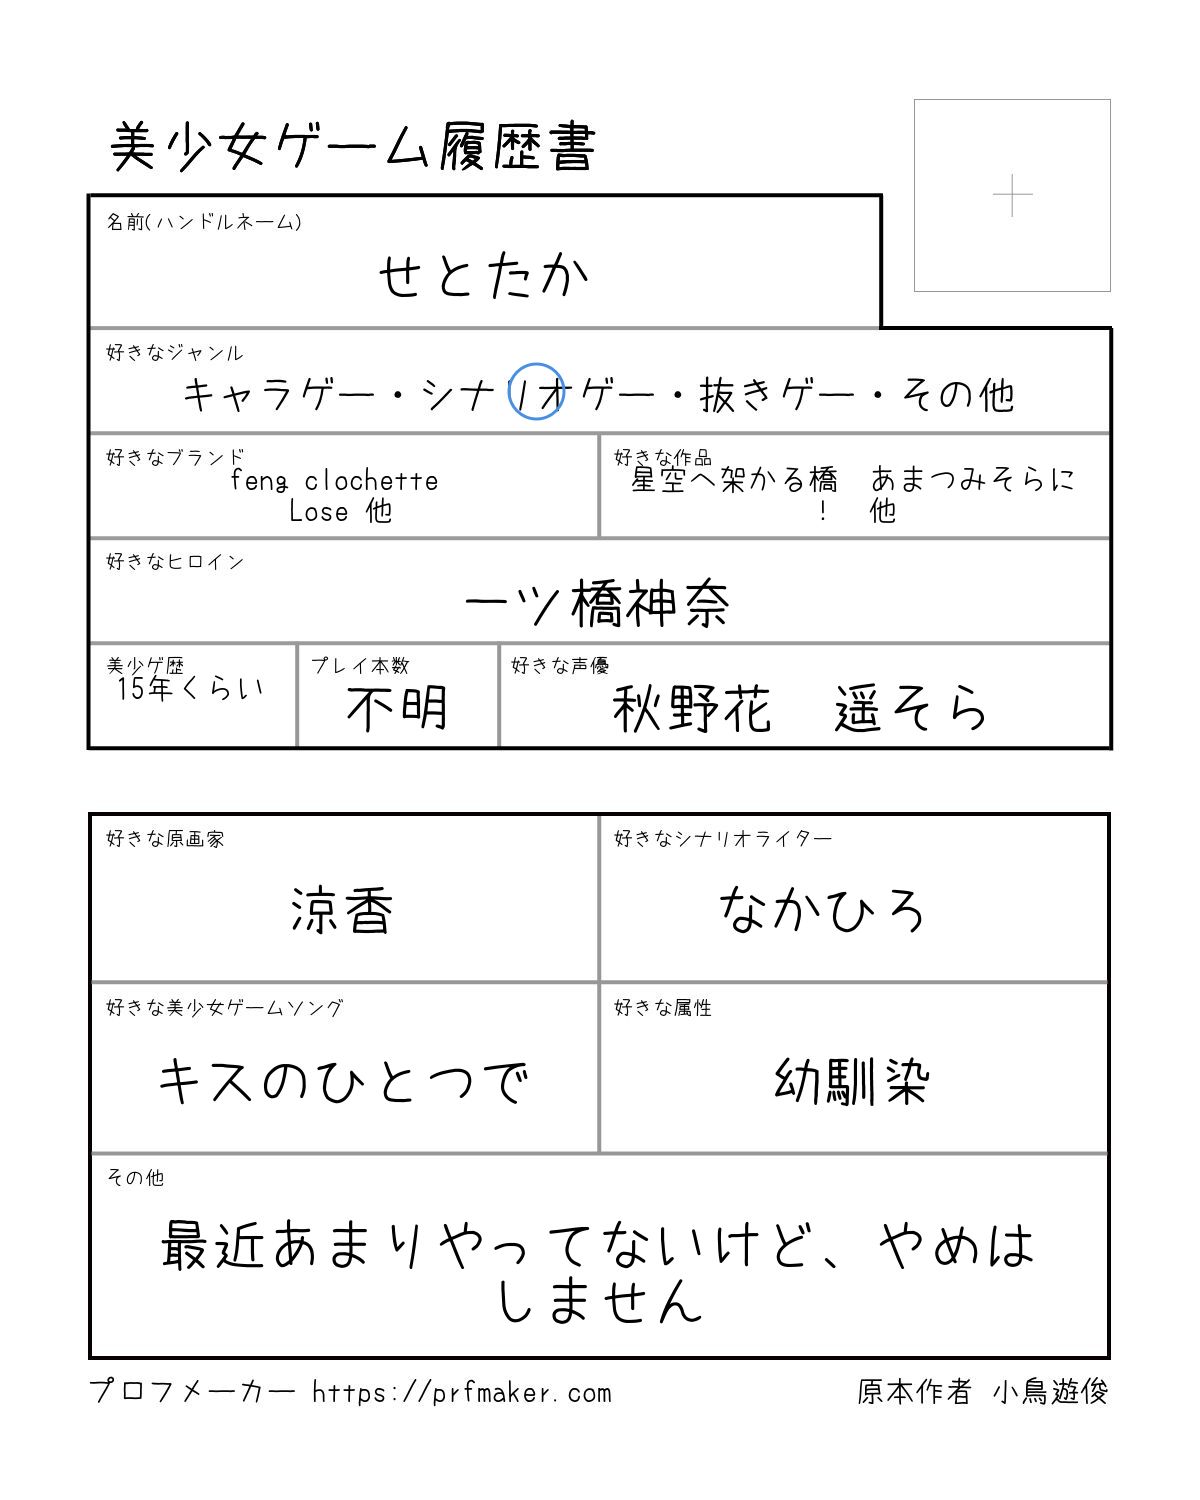 美少女ゲーム履歴書
名前(ハンドルネーム)
せとたか
好きなジャンル
キャラゲー・シナリオゲー・抜きゲー・その他
好きなブランド
feng clochette
Lose 他
好きな作品
星空へ架かる橋　あまつみそらに
!　他
好きなヒロイン
一ツ橋神奈
美少ゲ歴
15年くらい
プレイ本数
不明
好きな声優
秋野花　遥そら
好きな原画家
涼香
好きなシナリオライター
なかひろ
好きな美少女ゲームソング
キスのひとつで
好きな属性
幼馴染
その他
最近あまりやってないけど、やめは
しません
プロフメーカー https://prfmaker.com
原本作者 小鳥遊俊